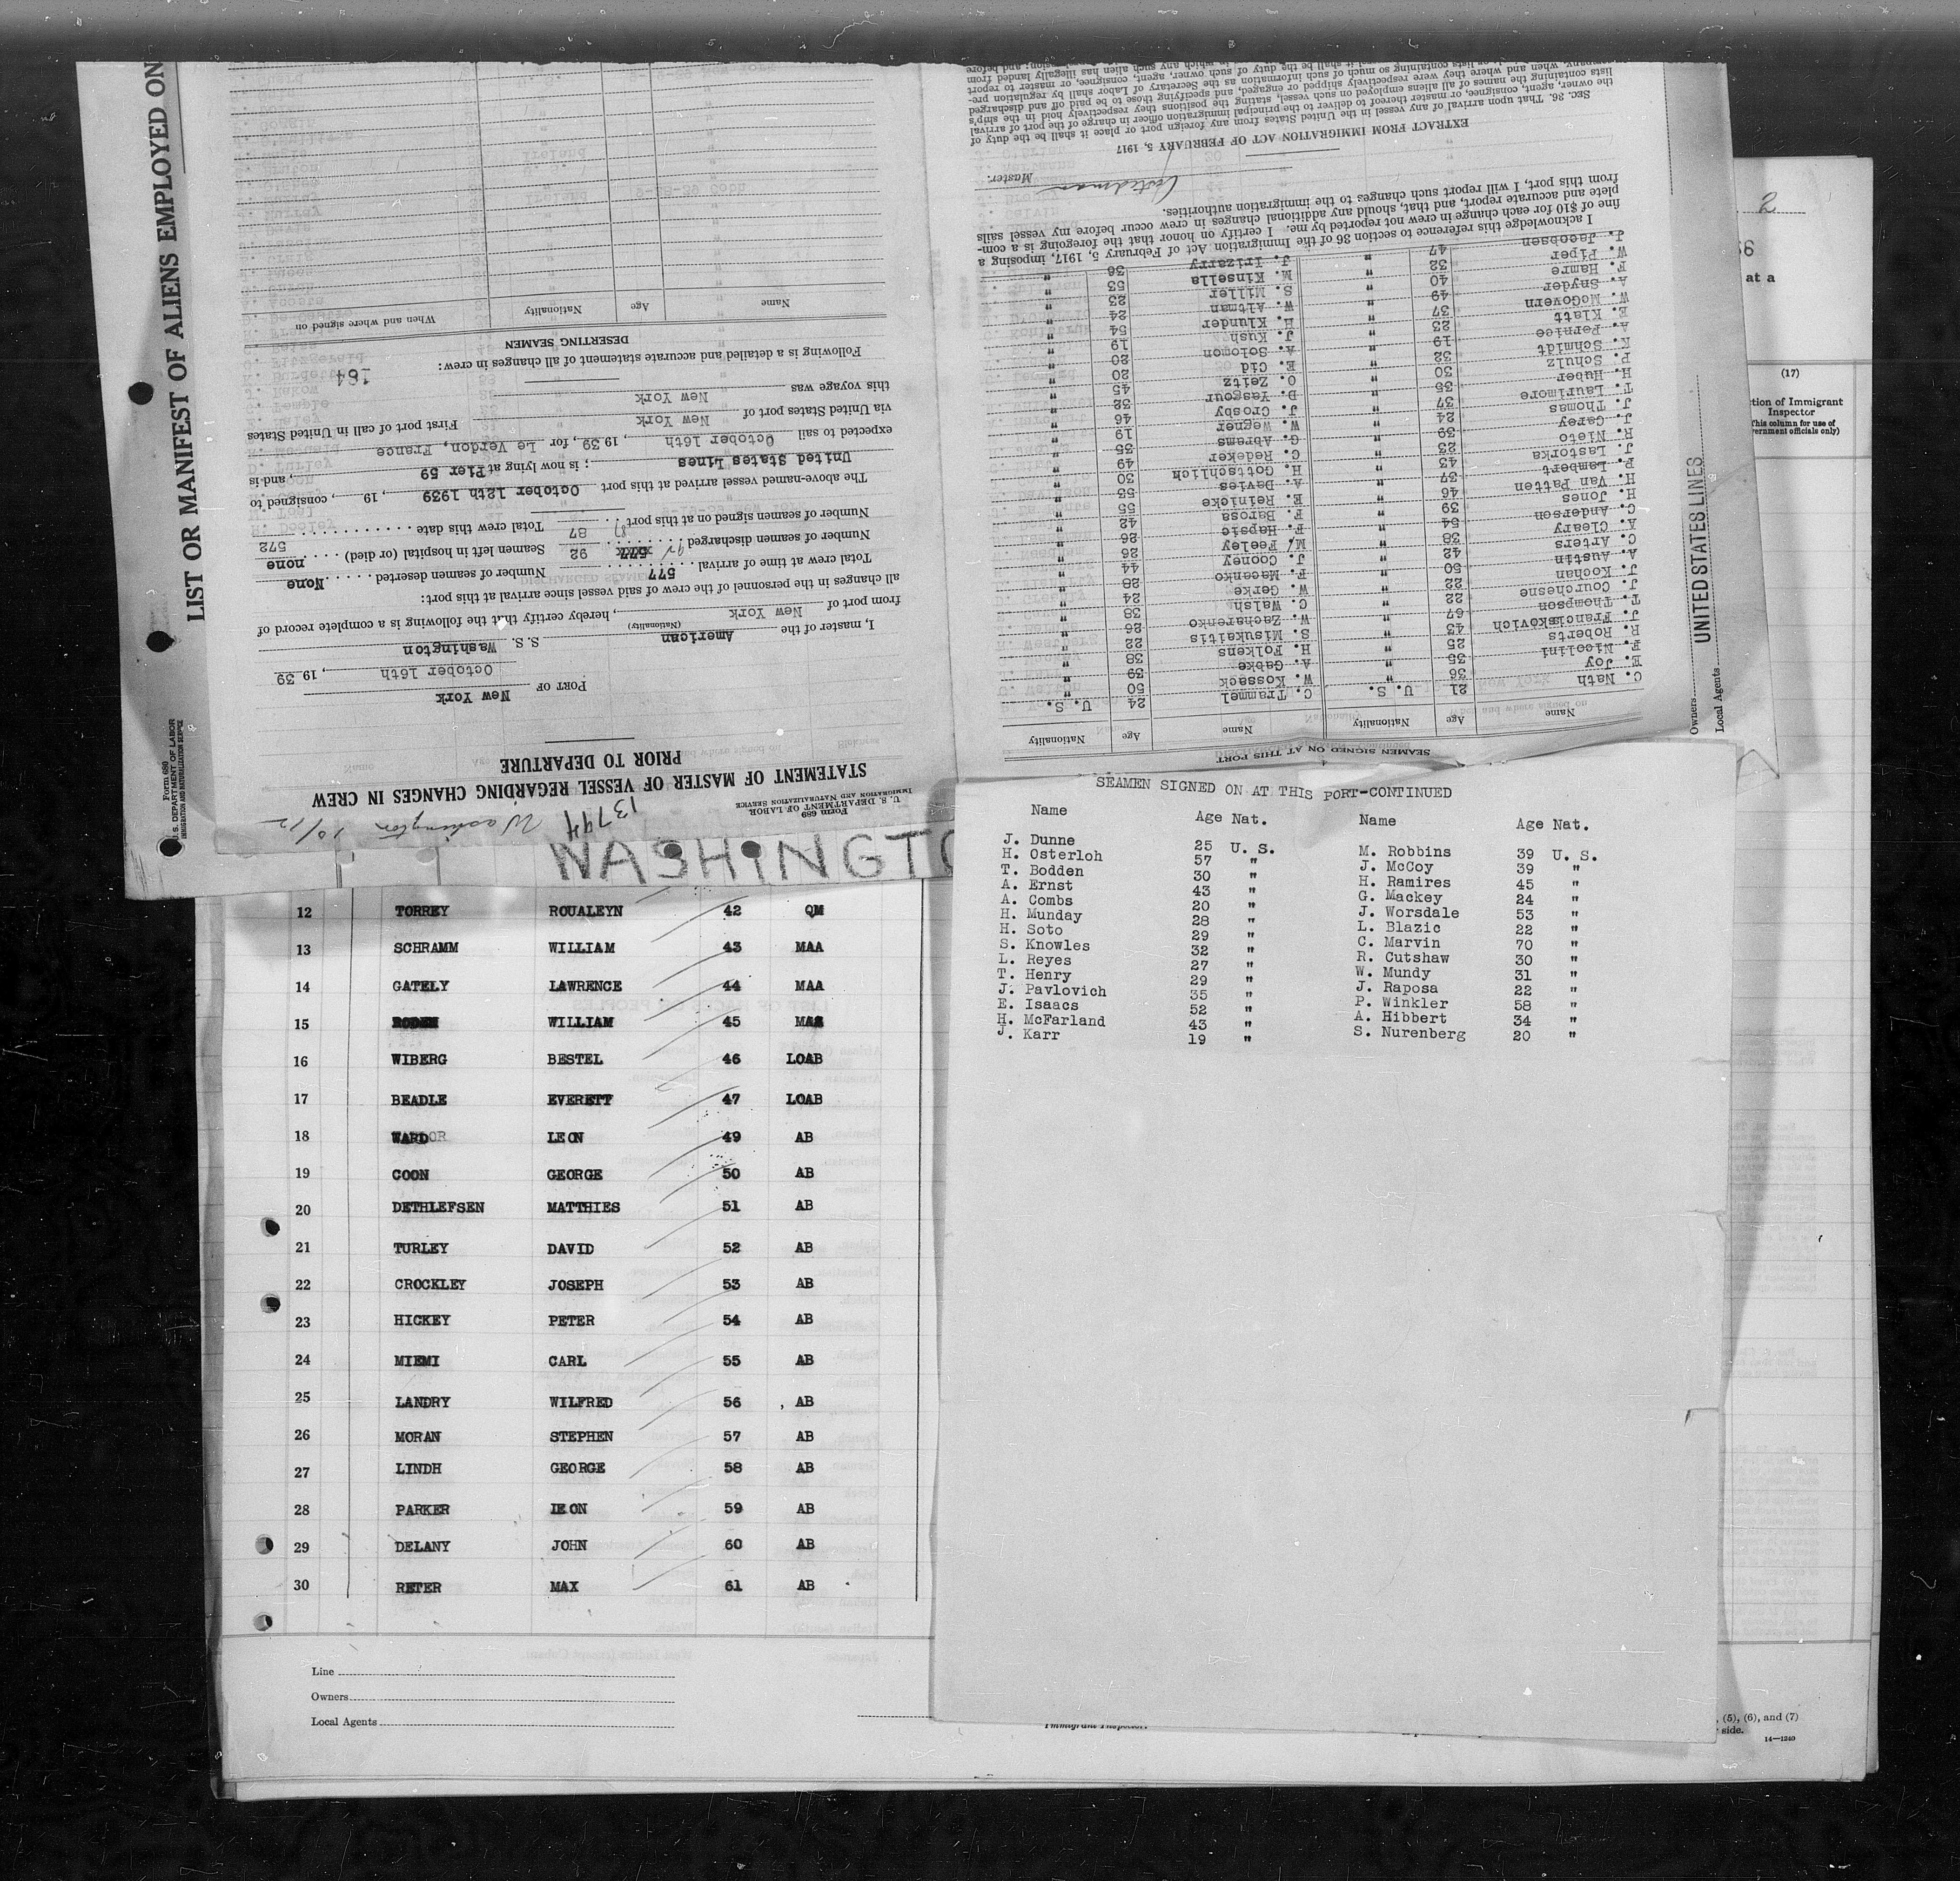 LIST OR MANIFEST OF ALIENS EMPLOYED ON
Form 680
U. S. DEPARTMENT OF LABOR
IMMIGRATION AND NATURALIZATION SERVICE
Form 689
U. S. DEPARTMENT OF LABOR
IMMIGRATION AND NATURALIZATION SERVICE
13794
Washington 10/12
STATEMENT OF MASTER OF VESSEL REGARDING CHANGES IN CREW
PRIOR TO DEPARTURE
PORT OF New York
October 16th, 19 39
I, master of the American S. S. Washington
(Nationality)
from port of New York, hereby certify that the following is a complete record of
all changes in the personnel of the crew of said vessel since arrival at this port:
Total crew at time of arrival 577 Number of seamen deserted None
Number of seamen discharged 92 Seamen left in hospital (or died) none
Number of seamen signed on at this port 87 Total crew this date 572
The above-named vessel arrived at this port October 12th 1939, 19 , consigned to
United States Lines; is now lying at Pier 59, and is
expected to sail October 16th, 19 39, for Le Verdon, France
via United States port of New York First port of call in United States
this voyage was New York
Following is a detailed and accurate statement of all changes in crew: 164
DESERTING SEAMEN
Name Age Nationality When and where signed on
SEAMEN SIGNED ON AT THIS PORT
Name Age Nationality Name Age Nationality
C. Nath 21 U. S. C. Trammel 24 U. S.
E. Joy 36 " W. Kossack 50 "
F. Nicolini 35 " A. Gabke 39 "
R. Roberts 25 " H. Folkens 38 "
J. Franciskovich 43 " S. Misukaitis 22 "
T. Thompson 67 " W. Zacharenko 26 "
J. Courchesne 22 " C. Walsh 38 "
J. Kochan 22 " W. Gerke 24 "
A. Austin 50 " F. Macenko 28 "
C. Arters 42 " J. Cooney 44 "
A. Cleary 38 " M. Feeley 26 "
C. Anderson 54 " P. Hapsic 26 "
H. Jones 39 " F. Barosa 42 "
H. Van Patten 46 " E. Reinicke 55 "
P. Lambert 37 " A. Davies 55 "
J. Lastorka 43 " H. Gottschlich 30 "
R. Nieto 23 " C. Redeker 49 "
J. Garey 39 " G. Abrams 35 "
J. Thomas 24 " W. Wegner 19 "
T. Laurimore 37 " J. Crosby 46 "
H. Huber 35 " D. Yasgour 32 "
P. Schulz 30 " O. Zeitz 45 "
K. Schmidt 32 " E. Cid 20 "
A. Pernice 19 " A. Solomon 20 "
E. Klatt 23 " J. Kush 19 "
W. McGovern 37 " H. Klunder 54 "
A. Snyder 49 " W. Altman 24 "
F. Hamre 40 " S. Miller 23 "
W. Piper 32 " M. Kinsella 53 "
J. Jacobsen 47 " J. Irizarry 36 "
I acknowledge this reference to section 36 of the Immigration Act of February 5, 1917, imposing a
fine of $10 for each change in crew not reported by me. I certify on honor that the foregoing is a com-
plete and accurate report, and that, should any additional changes in crew occur before my vessel sails
from this port, I will report such changes to the immigration authorities.
Master.
EXTRACT FROM IMMIGRATION ACT OF FEBRUARY 5, 1917
SEC. 36. That upon arrival of any vessel in the United States from any foreign port or place it shall be the duty of
the owner, agent, consignee, or master thereof to deliver to the principal immigration officer in charge of the port of arrival
lists containing the names of all aliens employed on such vessel, stating the positions they respectively hold in the ship's
company, when and where they were respectively shipped or engaged, and specifying those to be paid off and discharged
Owners
Local Agents
UNITED STATES LINES
2
at a
(17)
Action of Immigrant
Inspector
(This column for use of
Government officials only)
WASHINGTO
SEAMEN SIGNED ON AT THIS PORT-CONTINUED
Name Age Nat. Name Age Nat.
J. Dunne 25 U. S. M. Robbins 39 U. S.
H. Osterloh 57 " J. McCoy 39 "
T. Bodden 30 " H. Ramires 45 "
A. Ernst 43 " G. Mackey 24 "
A. Combs 20 " J. Worsdale 53 "
H. Munday 28 " L. Blazic 22 "
H. Soto 29 " C. Marvin 70 "
S. Knowles 32 " R. Cutshaw 30 "
L. Reyes 27 " W. Mundy 31 "
T. Henry 29 " J. Raposa 22 "
J. Pavlovich 35 " P. Winkler 58 "
E. Isaacs 52 " A. Hibbert 34 "
H. McFarland 43 " S. Nurenberg 20 "
J. Karr 19 "
12 TORREY ROUALEYN 42 QM
13 SCHRAMM WILLIAM 43 MAA
14 GATELY LAWRENCE 44 MAA
15 RODEN WILLIAM 45 MAA
16 WIBERG BESTEL 46 LOAB
17 BEADLE EVERETT 47 LOAB
18 WARD LEON 49 AB
19 COON GEORGE 50 AB
20 DETHLEFSEN MATTHIES 51 AB
21 TURLEY DAVID 52 AB
22 CROCKLEY JOSEPH 53 AB
23 HICKEY PETER 54 AB
24 MIEMI CARL 55 AB
25 LANDRY WILFRED 56 AB
26 MORAN STEPHEN 57 AB
27 LINDH GEORGE 58 AB
28 PARKER LEON 59 AB
29 DELANY JOHN 60 AB
30 RETER MAX 61 AB
Line
Owners
Local Agents
Immigrant Inspector.
, (5), (6), and (7)
side.
14—1240